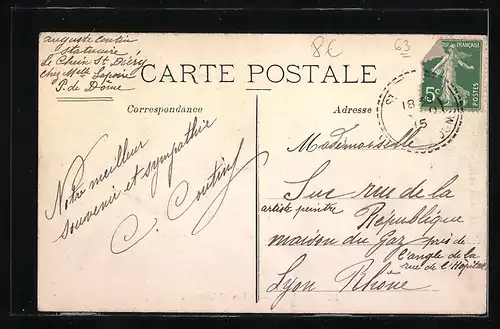 auguste coutin
statuaire
Le Cheix St Diéry
chez Melle Lapoire
P. de Dome
8€
63
CARTE POSTALE
Correspondance
Adresse
Notre meilleur
souvenir et sympathie
C. Coutin
Mademoiselle
Suc rue de la
artiste peintre
République
maison du Gaz près de
l'angle de la
rue de l'Hôpital
Lyon Rhône
FRANÇAISE
5c
POSTES
18
15